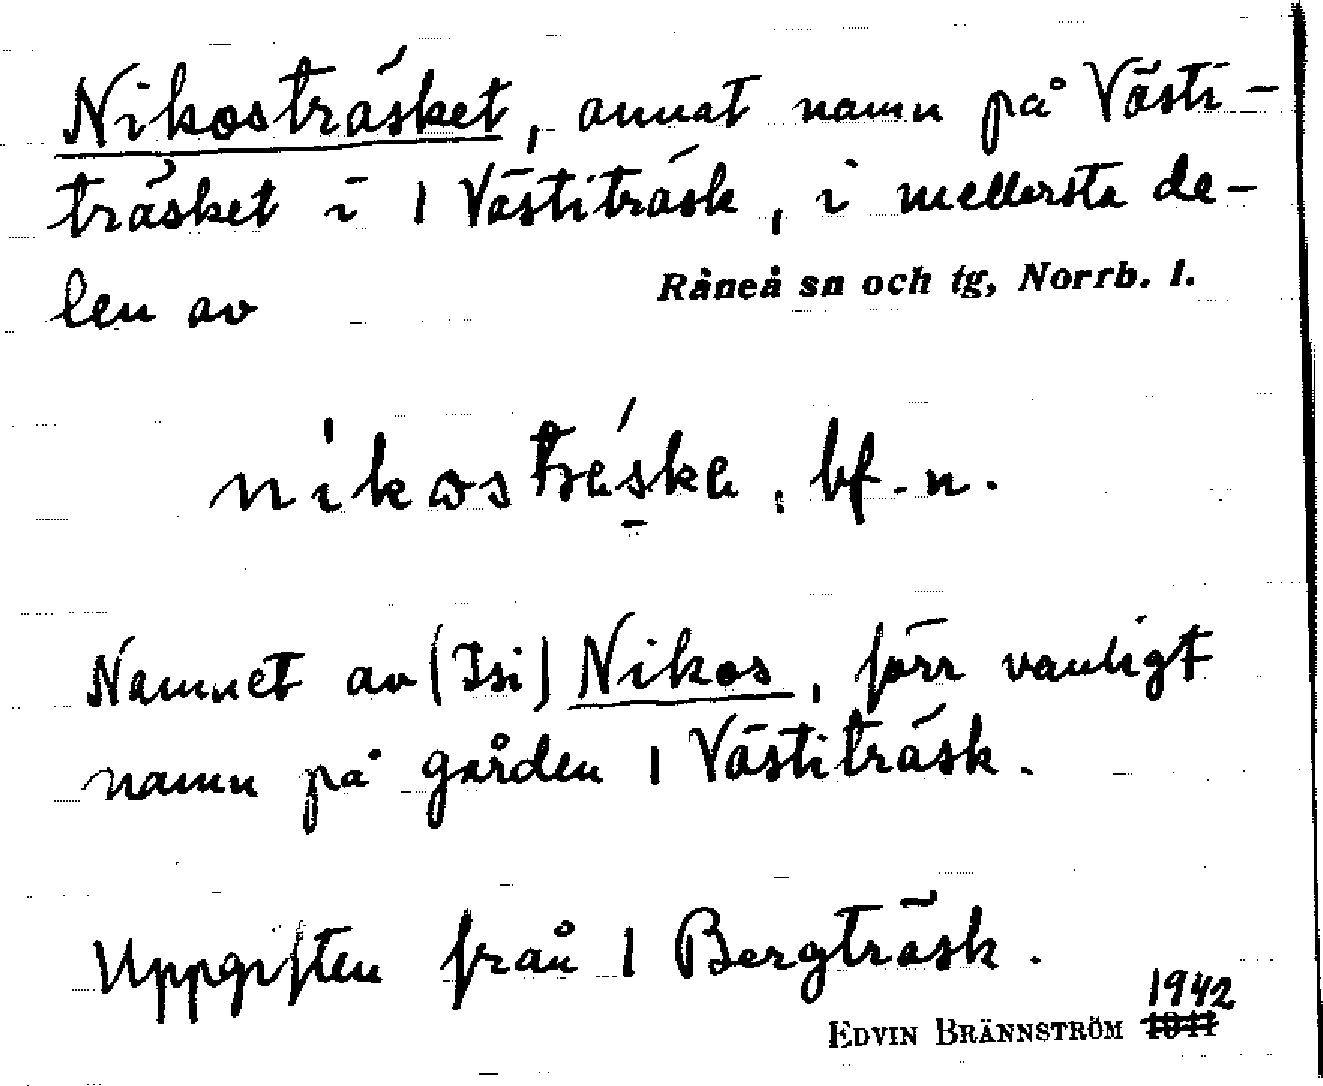 Nikosträsket, annat namn på Västi-
träsket i 1 Västiträsk, i mellersta de-
len av Råneå sn och tg, Norrb. l.
nikosträ́ske, bf. n.
Namnet av (Isi) Nikos, förr vanligt
namn på gården 1 Västiträsk.
Uppgiften från 1 Bergträsk.
1942
EDVIN BRÄNNSTRÖM 1941